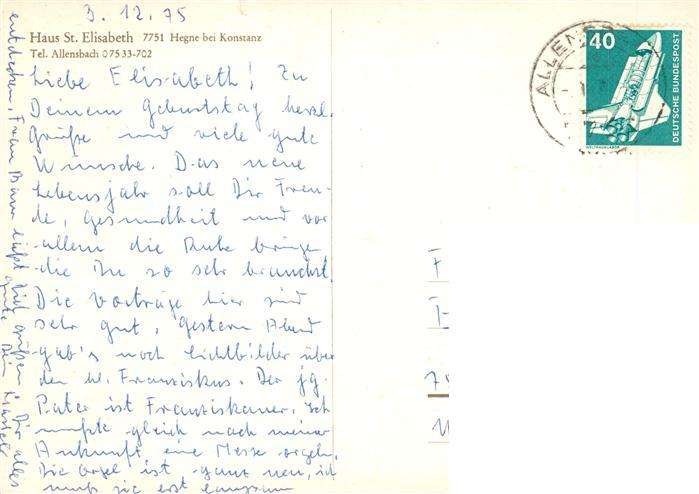 3.12.75
Haus St. Elisabeth 7751 Hegne bei Konstanz
Tel. Allensbach 07533-702
Liebe Elisabeth! Zu
Deinem Geburtstag herzl.
Grüße und viele gute
Wünsche. Das neue
Lebensjahr soll Dir Freu-
de, Gesundheit und vor
allem die Ruhe bringen
die Du so sehr brauchst.
Die Vorträge hier sind
sehr gut, gestern Abend
gab's noch Lichtbilder über
den hl. Franziskus. Der jg.
Pater ist Franziskaner. Ich
mußte gleich nach meiner
Ankunft eine Messe orgeln.
Die Orgel ist ganz neu, ich
muß sie erst langsam
entdecken, Frau Baur läßt Dich grüßen! Dir alles
gute Dein
ALLENSB
40
DEUTSCHE BUNDESPOST
WELTRAUMLABOR